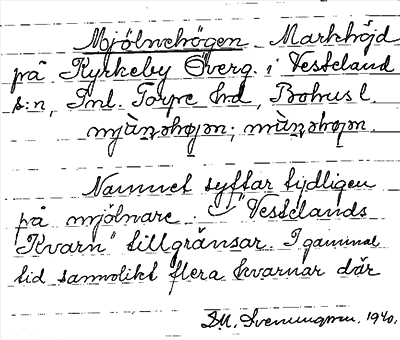 Mjölnehögen Markhöjd
på Kyrkeby Överg. i Vesteland
s:n, Inl. Torpe hd, Bohusl.
Namnet syftar tydligen
på mjölnare. "Vestelands
Kvarn" tillgränsar. I gammal
tid sannolikt flera kvarnar där
1940.